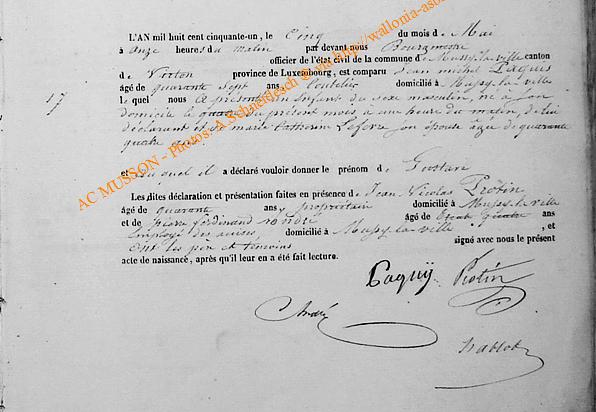 L'AN mil huit cent cinquante-un, le Cinq du mois de Mai
à onze heures du matin par devant nous Bourgmestre
officier de l'état civil de la commune de Mussy-la-ville canton
de Virton province de Luxembourg, est comparu Jean Michel Paquis
âgé de quarante sept ans domicilié à Mussy-la-ville
17
Le quel nous a présenté un Enfant du sexe masculin, né à son
domicile le quatre du présent mois à une heure du matin, de lui
déclarant et de marie Catherine Lefevre son épouse âgée de quarante
quatre ans
et auquel il a déclaré vouloir donner le prénom de Gustave
Les dites déclaration et présentation faites en présence de Jean Nicolas Protin
âgé de quarante ans, propriétaire domicilié à Mussy-la-ville
et de Pierre ferdinand âgé de trente quatre ans
Employé des domicilié à Mussy-la-ville, et
ont les père et témoins signé avec nous le présent
acte de naissance, après qu'il leur en a été fait lecture.
Paquis Protin
AC MUSSON - Photos: A Schaetsdesch @ via http://wallonia-asb